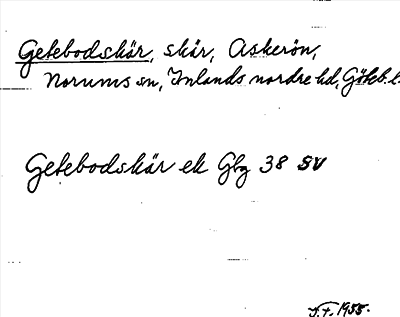 Getebodskär, skär, Askerön,
Norums sn, Inlands nordre hd, Göteb. l.
Getebodskär ek Gbg 38 SV
J.T. 1955.